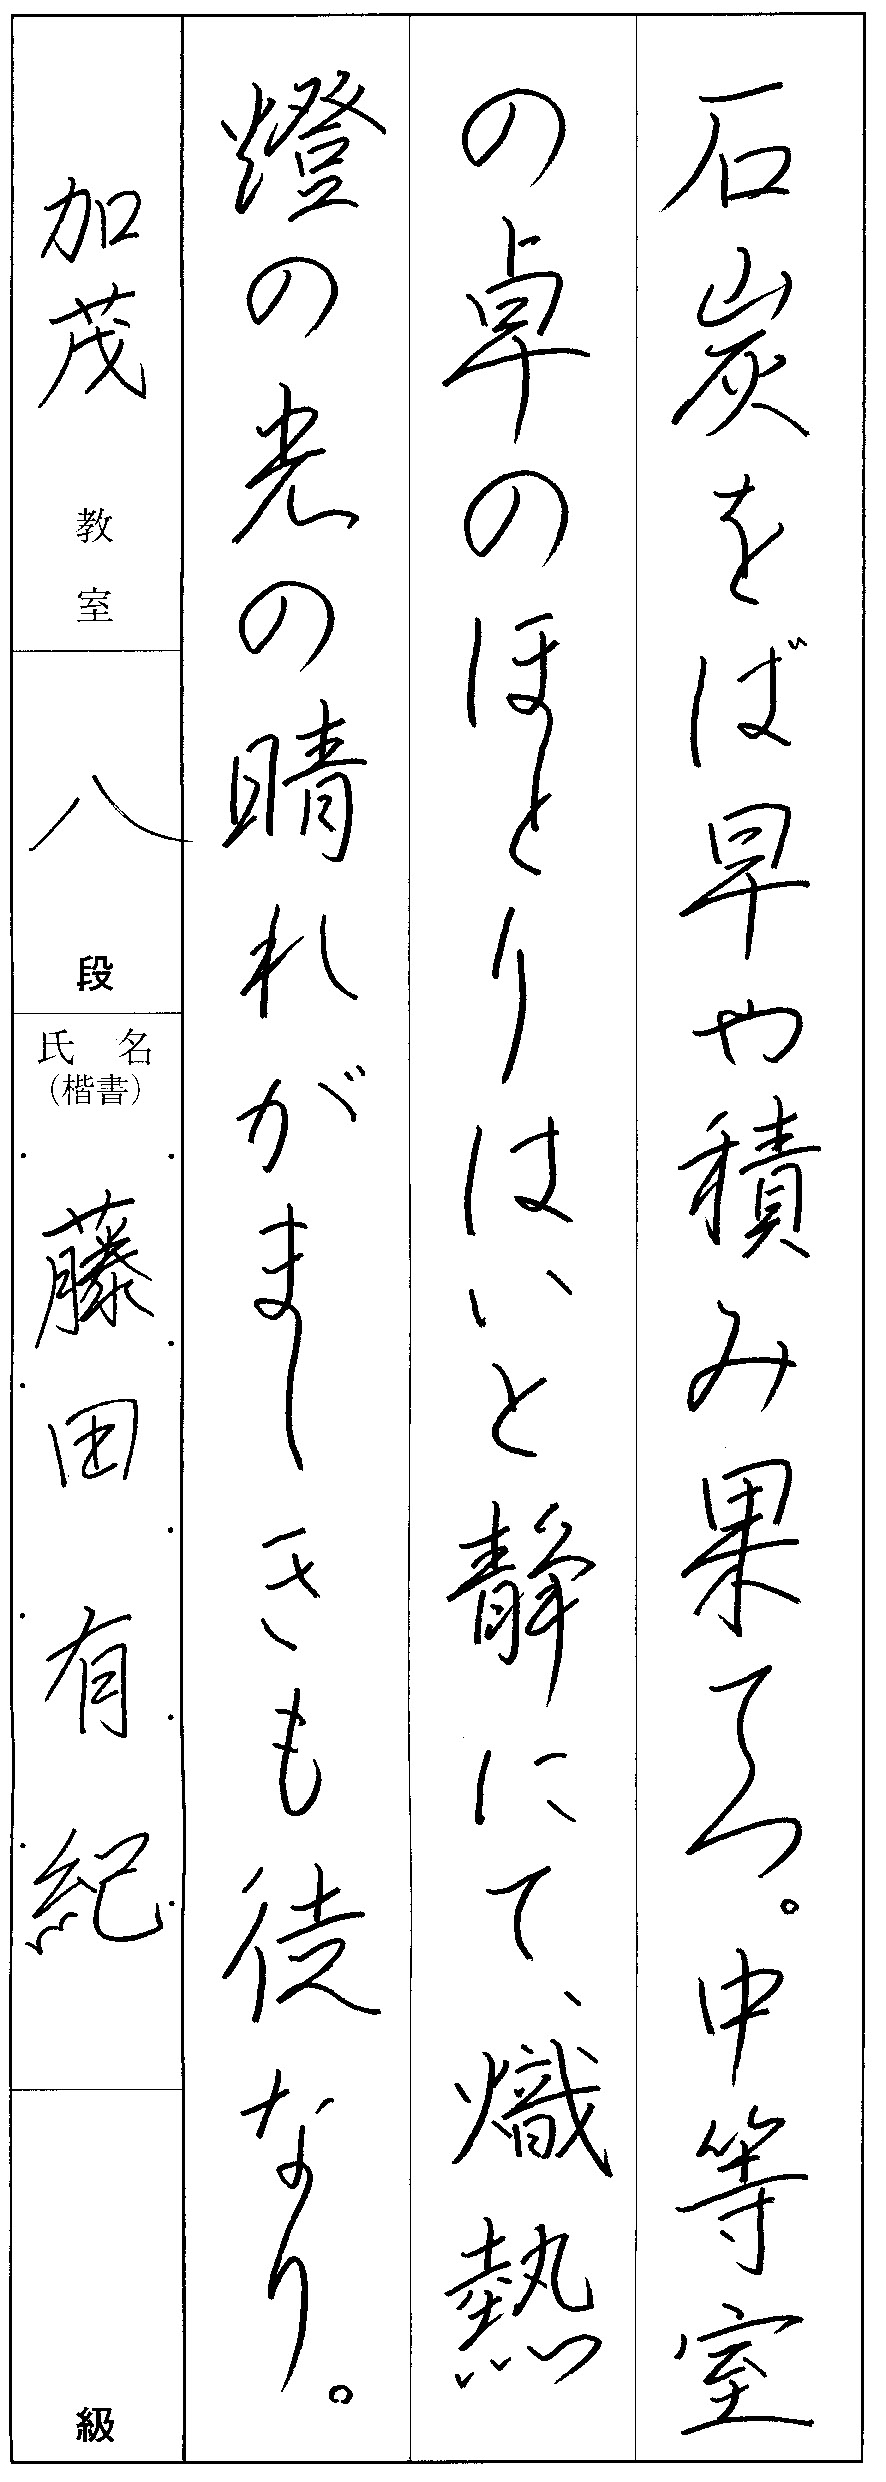 石炭をば早や積み果てつ。中等室
の卓のほとりはいと静にて、熾熱
燈の光の晴れがましきも徒なり。
加茂 教室
八 段
氏名
(楷書)
藤田有紀
級